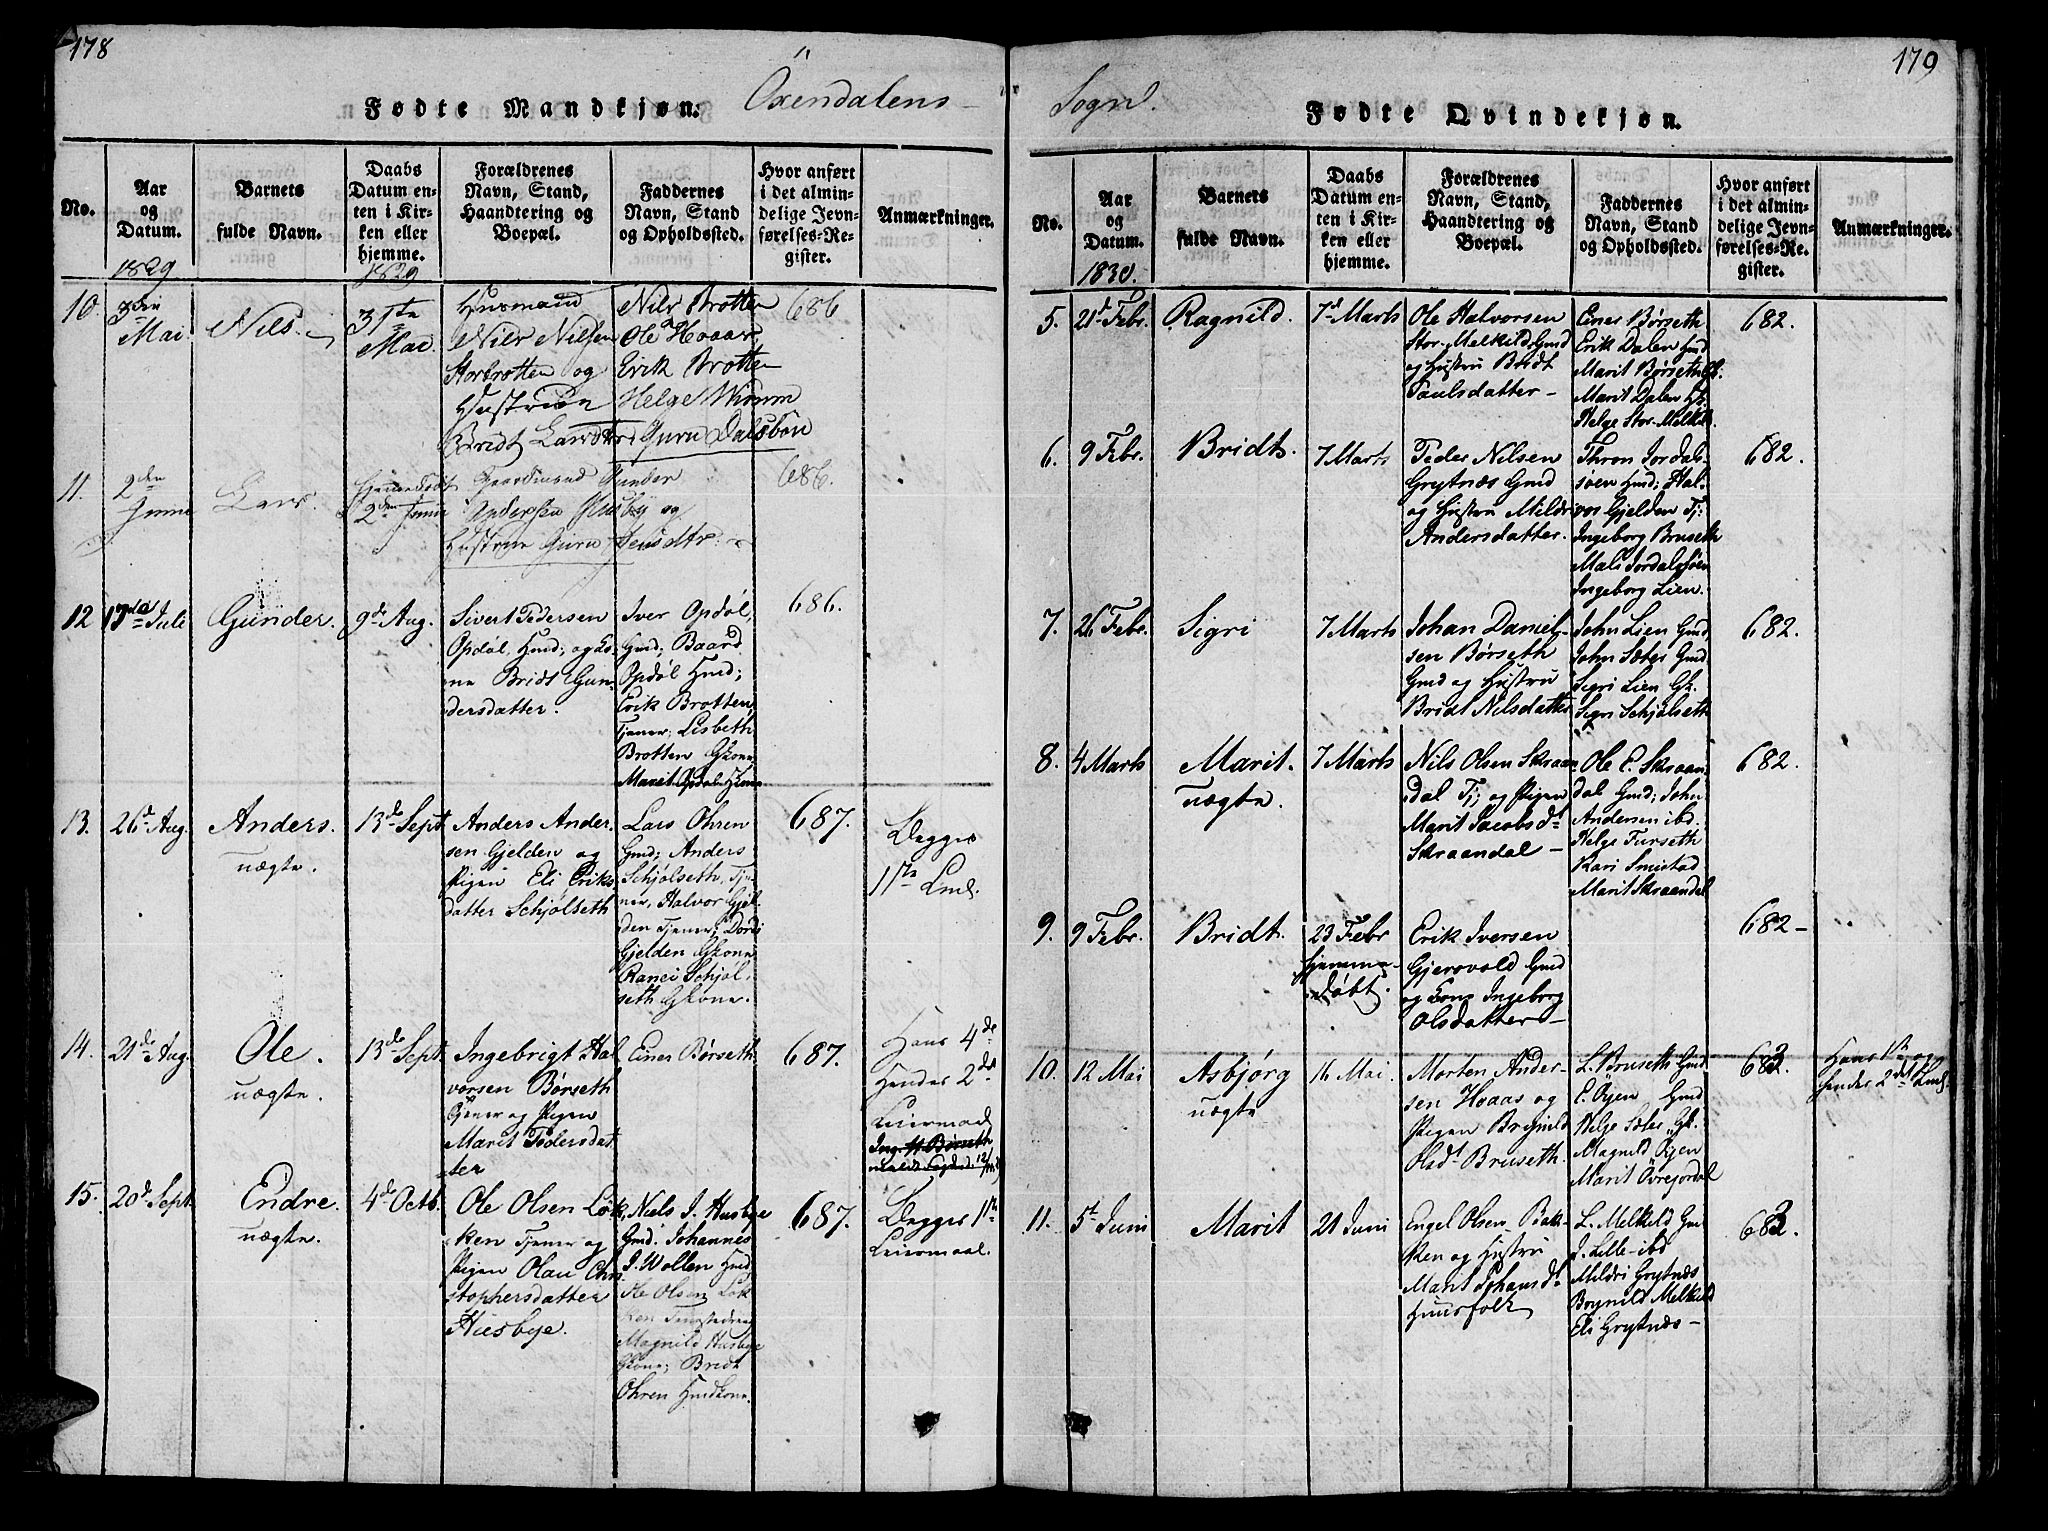 178
Öxendalens
Fødte Mandkjøn.
No.
Aar
og
Datum.
1829
Barnets
fulde Navn.
Daabs
Datum en-
ten i Kir-
ken eller
hjemme.
1829
Forældrenes
Navn, Stand,
Haandtering og
Boepæl.
Faddernes
Navn, Stand
og Opholdssted.
Hvor anført
i det almin-
delige Jevn-
førelses-Re-
gister.
Anmærkninger.
10.
3die
Mai
Nils.
31te
Mai.
Husmand
Nils Nilsen
Storbrotten og
Hustrue
Bridt Larsdtr.
Nils Brotten
Ole Hoaas
Erik Brotten
Helge
Guru Dalsbøn
686
11.
2den
Junii
Lars.
Hjemmedøbt
2den Junii
Gaardmand Gunder
Andersen Husby og
Hustrue Guru Jensdtr.
686.
12
Juli
Gunder.
9de Aug.
Sivert Pedersen
Opdøl, Hmd; og Ko-
ne Bridt Gun-
dersdatter.
Iver Opdøl,
Gmd; Baard
Opdøl Hmd;
Erik Brotten,
Tjener; Lisbeth
Brotten Gkone
Marit Opdøl Hkone
686.
13.
26d Aug.
Anders.
uægte.
13de Sept.
Anders Ander-
sen Gjelden og
Pigen Eli Eriks-
datter Schjølseth
Lars Ohren
Gmd; Anders
Schjølseth, Tje-
ner, Halvor Gjel-
den Tjener; Dordi
Gjelden Gkone
Ranei Schjøl-
seth Gkone.
687.
Begges
11te Lml.
14.
21de Aug.
Ole.
uægte.
13de Sept.
Ingebrigt Hal
vorsen Børseth
Tjener og Pigen
Marit Pedersdat
ter
Einer Børseth
687.
Hans 4de
Hendes 2det
Leiermaal
Ing. H Børseth
15.
20d Sept.
Endre.
uægte.
4de Octb.
Ole Olsen Løk-
ken Tjener og
Pigen Olau Chri
stophersdatter
Husbye.
Niels J. Husbye
Gmd. Johannes
J. Wollen Hmd
Ole Olsen Løk
ken
Magnild Husbye
Gkone; Bridt
Ohren Hmdkone.
687.
Begges 1te
Leiermaal.
179
Sogn.
Fødte Qvindekjøn.
No.
Aar
og
Datum.
1830.
Barnets
fulde Navn.
Daabs
Datum en-
ten i Kir-
ken eller
hjemme.
Forældrenes
Navn, Stand,
Haandtering og
Boepæl.
Faddernes
Navn, Stand
og Opholdssted.
Hvor anført
i det almin-
delige Jevn-
førelses-Re-
gister.
Anmærkninger.
5.
21d Febr.
Ragnild.
7d Marts
Ole Halvorsen
Stor-Melkild Gmd
og Hustru Bridt
Paulsdatter -
Einer Børseth
Erik Dalen Hmd
Marit Børseth Gk.
Marit Dalen Hk.
Helge Stor-Melkild.
682.
6.
9 Febr.
Bridt.
7 Marts
Peder Nilsen
Grytnæs Gmd
og Hustru Mildri
Andersdatter.
Thron Jordals-
øen Hmd; Hal-
vor Gjelden Tj.
Ingeborg Bruseth
Mali Jordalsøen
Ingeborg Lien.
682.
7.
26 Febr.
Sigri
7 Marts
Johan Daniel-
sen Børseth
Gmd og Hustru
Bridt Nilsdatter
John Lien Gmd
John Sæter Gmd
Sigri Lien Gk.
Sigri Schjølseth
682.
8.
4 Marts
Marit.
uægte.
7 Marts
Nils Olsen Skraan-
dal Tj; og Pigen
Marit Jacobsdt
Skraandal -
Ole E. Skraan
dal Gmd; John
Andersen ibd.
Helge Furseth
Kari Smistad
Marit Skraandal
682.
9.
9 Febr.
Bridt.
23 Febr
hjemme-
døbt.
Erik Iversen
Gjersvold Gmd
og Kone Ingeborg
Olsdatter -
682-
10.
12 Mai
Asbjørg
uægte
16 Mai.
Morten Ander-
sen Hoaas og
Pigen Brynild
Olsdt Bruseth.
L. Bruseth Gmd
E. Øyen Gmd
Helge Sæter Gk.
Magnild Øyen
Marit Øvrejordal
683.
Hans 1te og
hendes 2det Lml.
11.
5t Juni
Marit
21 Juni
Engel Olsen Bak-
ken og Hustru
Marit Johansdt
Huusfolk
L. Melkild Gmd
J. Lille-ibd
Mildri Grytnæs
Brynild Melkild
Eli Grytnæs -
683.